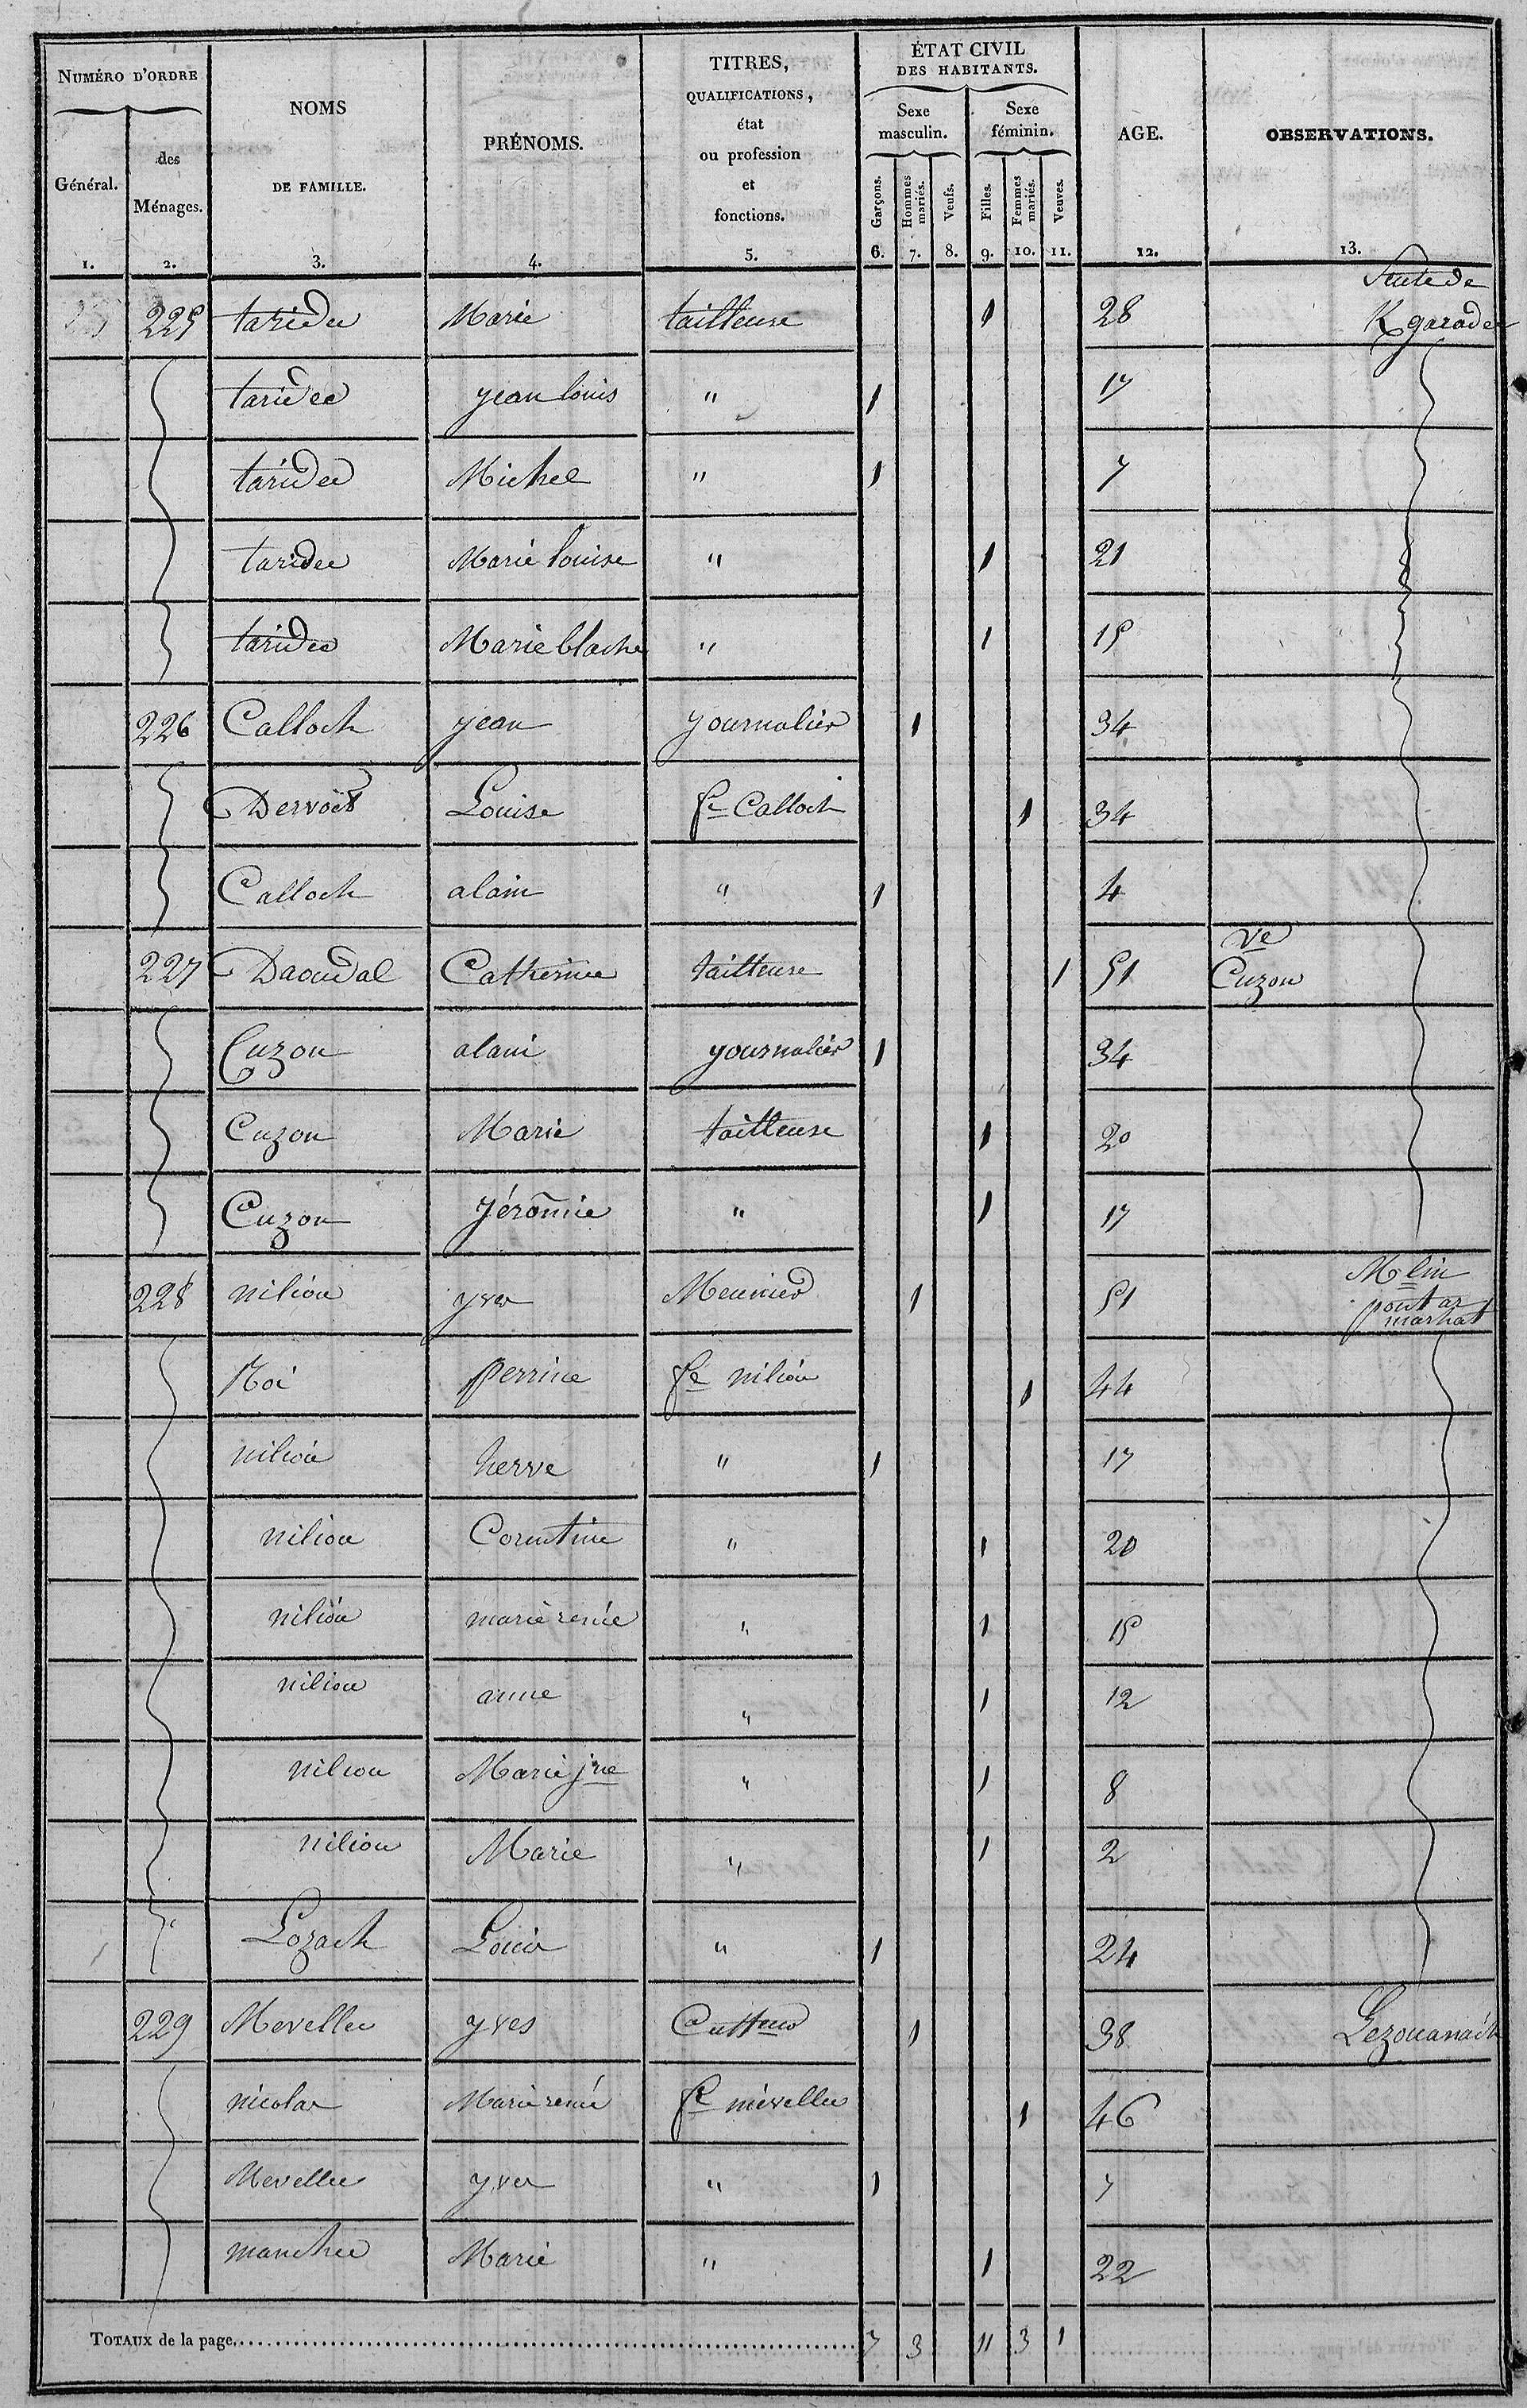 NUMÉRO D'ORDRE
Général.
des Ménages.
NOMS DE FAMILLE.
PRÉNOMS.
TITRES, QUALIFICATIONS, état ou profession et fonctions.
ÉTAT CIVIL DES HABITANTS.
Sexe masculin.
Sexe féminin.
Garçons.
Hommes mariés.
Veufs.
Filles.
Femmes mariés.
Veuves.
AGE.
OBSERVATIONS.
1. 2. 3. 4. 5. 6. 7. 8. 9. 10. 11. 12. 13.
225 taridec Marie tailleuse 1 28 K garadec
taridec jean louis " 1 17
taridec Michel " 1 7
taridec Marie louise " 1 21
taridec Marie blache " 1 15
226 Calloch jean journalier 1 34
Dervoët Louise fe Calloch 1 34
Calloch alain " 1 4
227 Daoudal Catherine tailleuse 1 51 Ve Cuzon
Cuzon alain journalier 1 34
Cuzon Marie tailleuse 1 20
Cuzon jéromie " 1 17
228 niliou yves Meunier 1 51 Mlin pont ar marhat
Noé perrine fe niliou 1 44
niliou herve " 1 17
niliou Corentine " 1 20
niliou marie renée " 1 15
niliou anne " 1 12
niliou Marie jne " 1 8
niliou Marie " 1 2
Lozach Louis " 1 24
229 Mevellec yves Cultteur 1 38 Lezouanach
nicolas Marie renée fe mévellec 1 46
Mevellec yves " 1 7
manchec Marie " 1 22
TOTAUX de la page 7 3 11 3 1